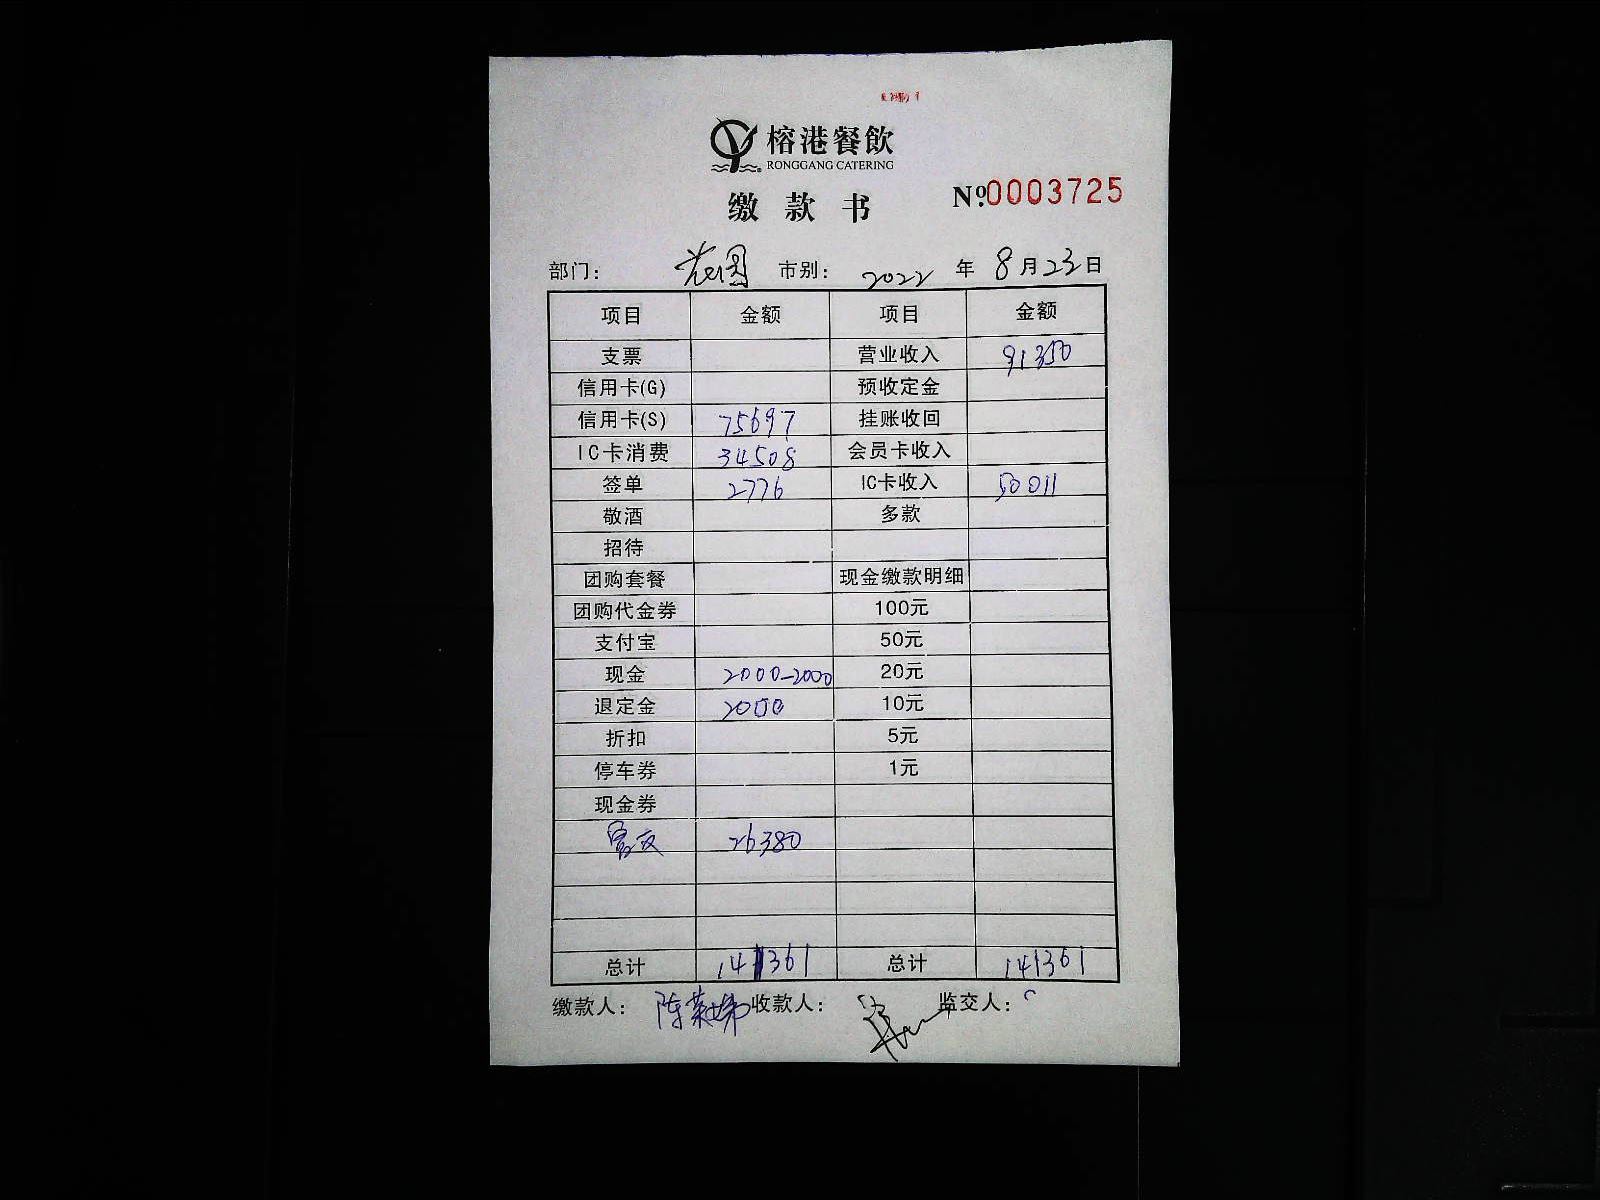 榕港餐飲
RONGGANG CATERING
缴款书
№:0003725
部门: 花园 市别: 2022 年 8 月 23 日
项目 金额 项目 金额
支票 营业收入 91350
信用卡(G) 预收定金
信用卡(S) 75697 挂账收回
IC卡消费 34508 会员卡收入
签单 2776 IC卡收入 50011
敬酒 多款
招待
团购套餐 现金缴款明细
团购代金券 100元
支付宝 50元
现金 2000-2000 20元
退定金 2000 10元
折扣 5元
停车券 1元
现金券
26380
总计 141361 总计 141361
缴款人: 陈 娣 收款人: 监交人: